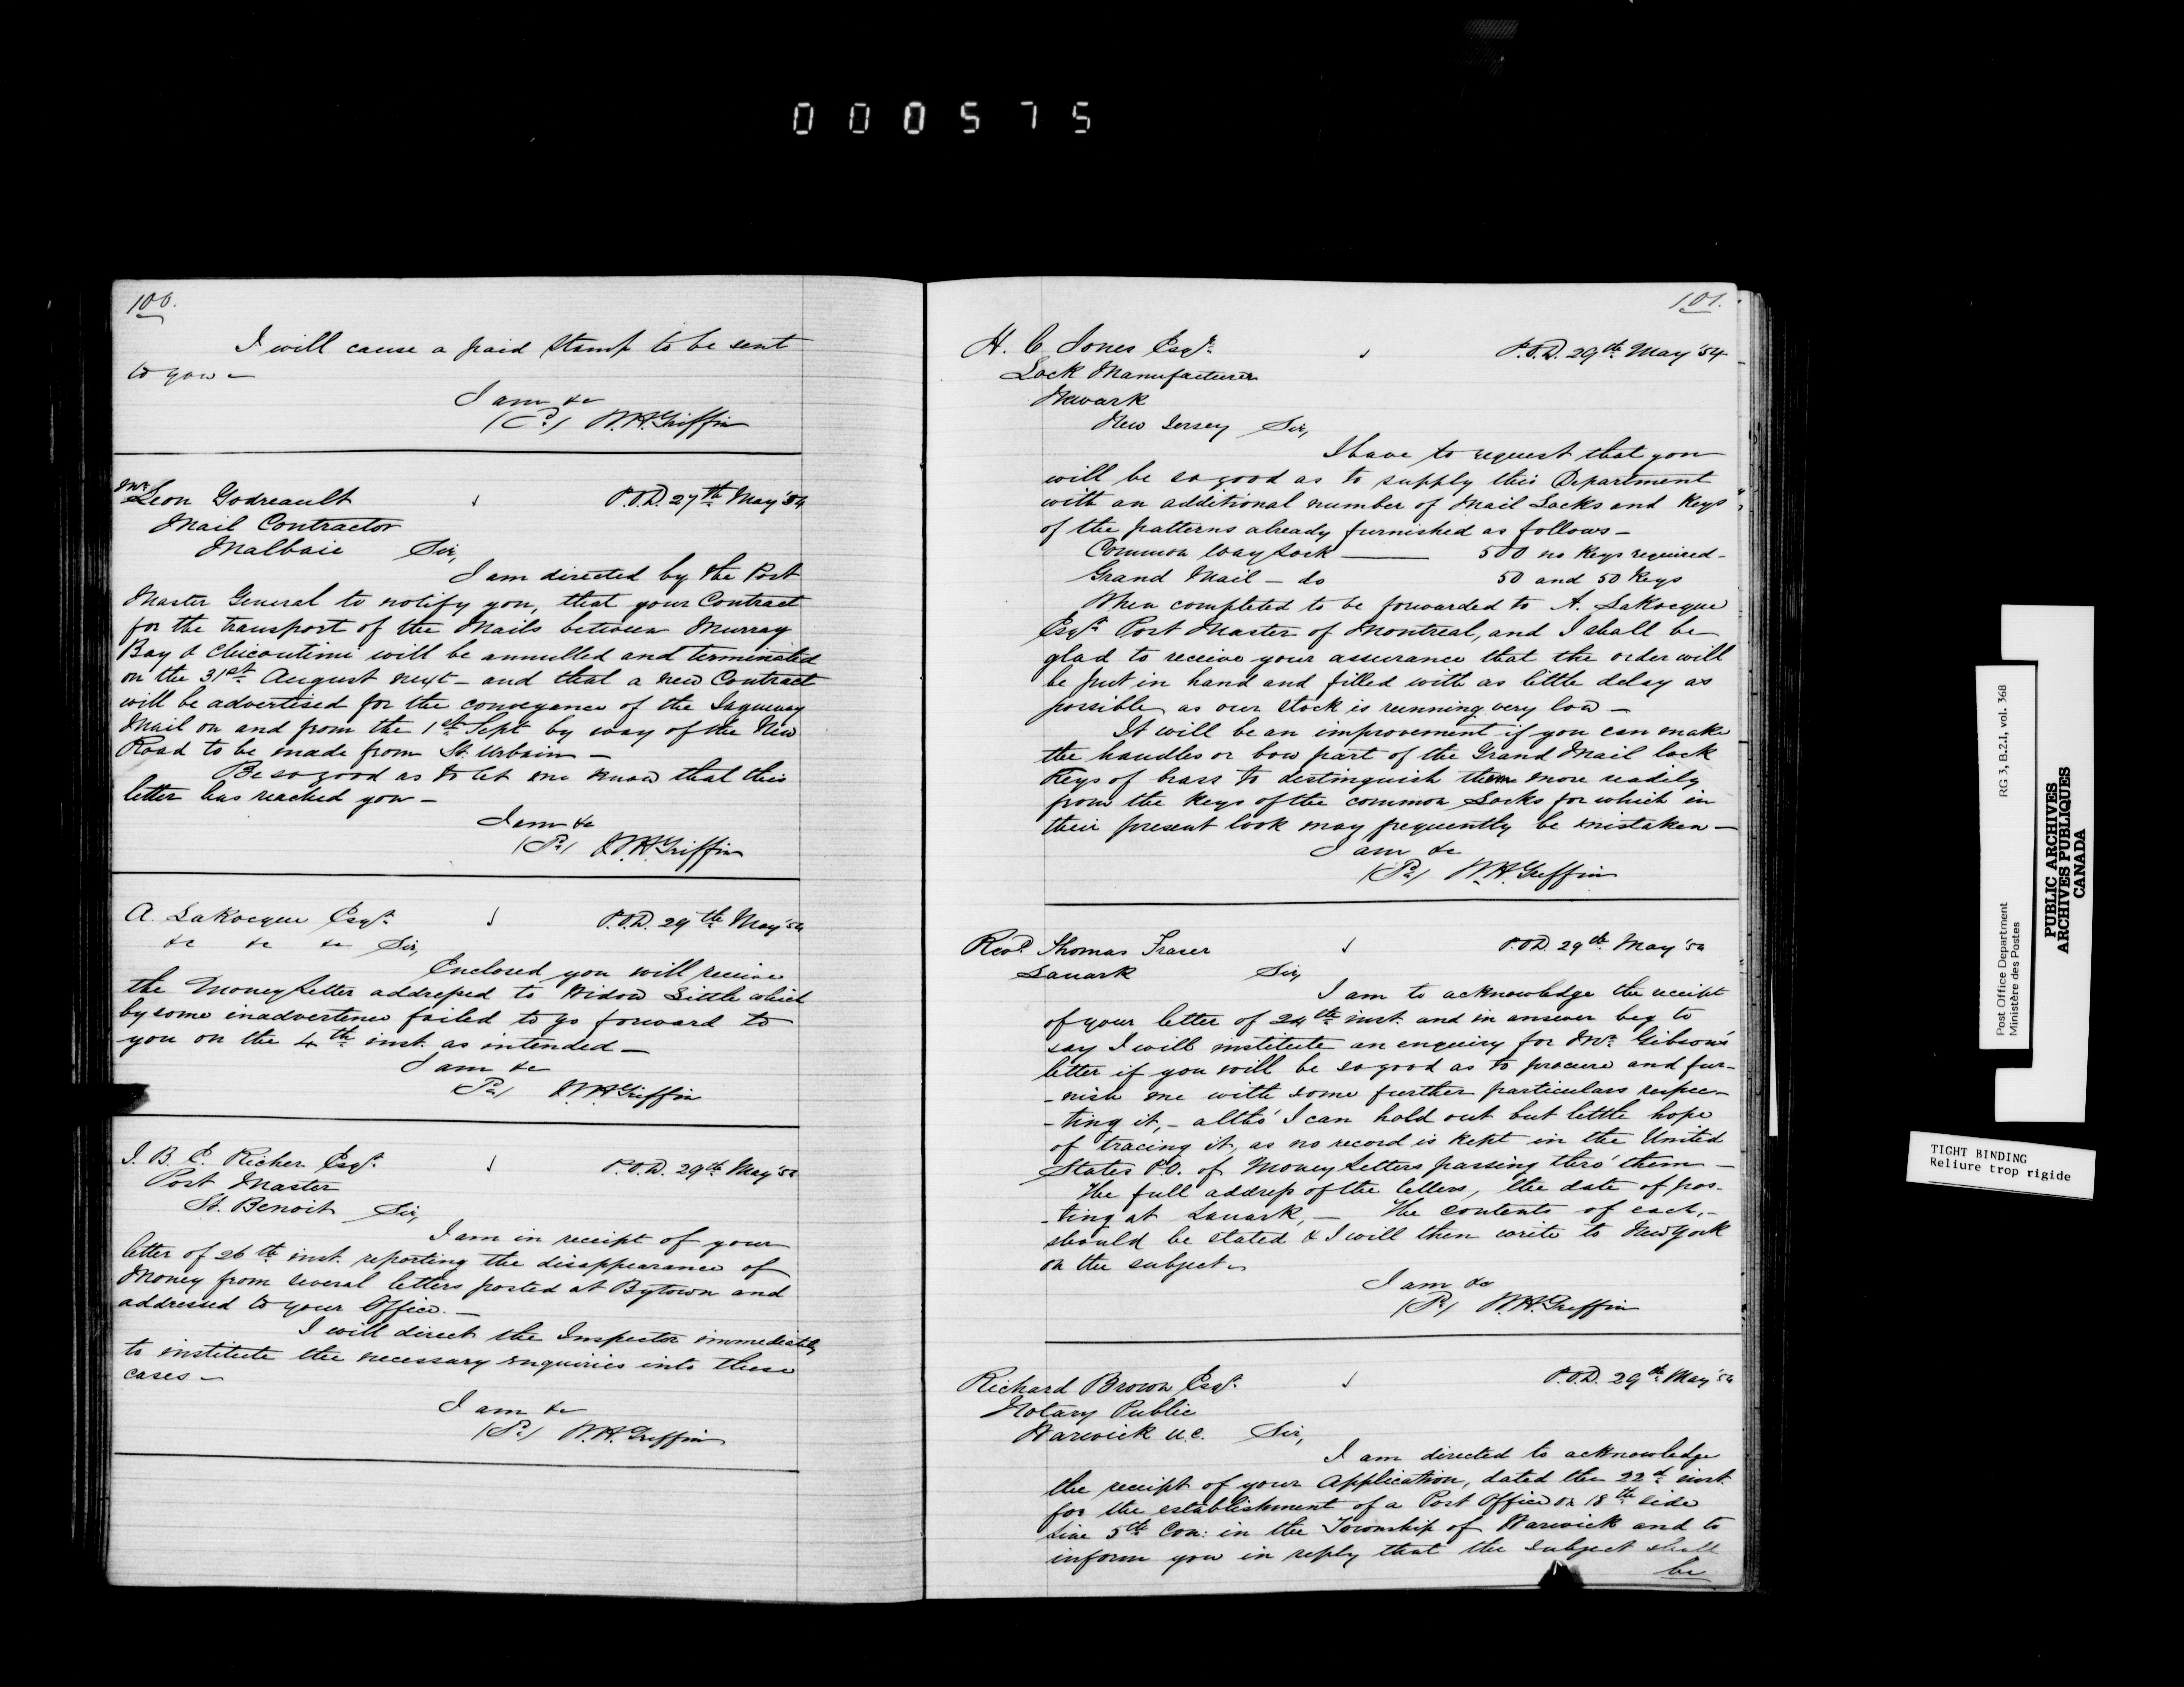 000575
100.
I will cause a paid Stamp to be sent
to you –
I am &c
W. H. Griffin
Mr. Leon Godreault
P.O.D. 27th May '54
Mail Contractor
Malbaie Sir,
I am directed by the Post
Master General to notify you, that your Contract
for the transport of the Mails between Murray
Bay & Chicoutimi will be annulled and terminated
on the 31st August next – and that a new Contract
will be advertised for the conveyance of the Saguenay
Mail on and from the 1st Sept by way of the New
Road to be made from St. Urbain –
Be so good as to let me know that this
letter has reached you –
I am &c
W. H. Griffin
A. LaRocque Esqr.
P.O.D. 29th May '54
&c &c &c Sir,
Enclosed you will receive
the Money Letter addressed to Widow Little which
by some inadvertence failed to go forward to
you on the 4th inst. as intended –
I am &c
W. H. Griffin
J. B. C. Richer Esqr.
P.O.D. 29th May '54
Post Master
St. Benoit Sir,
I am in receipt of your
letter of 26th inst. reporting the disappearance of
Money from several letters posted at Bytown and
addressed to your Office. –
I will direct the Inspector immediately
to institute the necessary enquiries into these
cases –
I am &c
W. H. Griffin
101.
H. C. Jones Esqr.
P.O.D. 29th May '54
Lock Manufacturer
Newark
New Jersey Sir,
I have to request that you
will be so good as to supply this Department
with an additional number of Mail Locks and Keys
of the patterns already furnished as follows –
Common Way Lock —— 500 no Keys required –
Grand Mail – do 50 and 50 Keys
When completed to be forwarded to A. LaRocque
Esqr. Post Master of Montreal, and I shall be
glad to receive your assurance that the order will
be put in hand and filled with as little delay as
possible as our stock is running very low –
It will be an improvement if you can make
the handles or bow part of the Grand Mail lock
Keys of brass to distinguish them more readily
from the Keys of the common Locks for which in
their present look may frequently be mistaken –
I am &c
W. H. Griffin
Revd. Thomas Fraser
P.O.D. 29th May '54
Lanark Sir,
I am to acknowledge the receipt
of your letter of 24th inst. and in answer beg to
say I will institute an enquiry for Mr. Gibson's
letter if you will be so good as to procure and fur-
-nish me with some further particulars respec-
-ting it, – altho' I can hold out but little hope
of tracing it, as no record is kept in the United
States P.O. of Money Letters passing thro' them –
The full address of the letters, the date of pos-
-ting at Lanark, – The contents of each, –
should be stated & I will then write to New York
on the subject –
I am &c
W. H. Griffin
Richard Brown Esqr.
P.O.D. 29th May '54
Notary Public
Warwick U.C. Sir,
I am directed to acknowledge
the receipt of your Application, dated the 22d inst.
for the establishment of a Post Office on 18th side
Line 5th Con: in the Township of Warwick and to
inform you in reply that the subject shall
be
Post Office Department RG 3, B.2.I, vol. 368
Ministère des Postes
PUBLIC ARCHIVES
ARCHIVES PUBLIQUES
CANADA
TIGHT BINDING
Reliure trop rigide